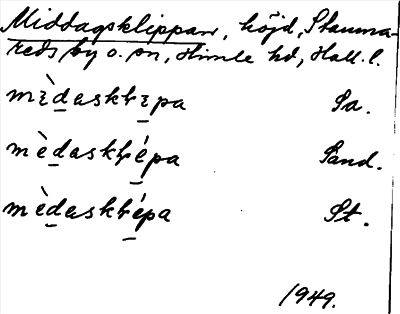 Middagsklippan, höjd, Stamma-
reds by o. sn, Himle hd, Hall. l.
mìdasklipa Sa.
mèdasklépa Sand.
mèdasklépa St.
1949.